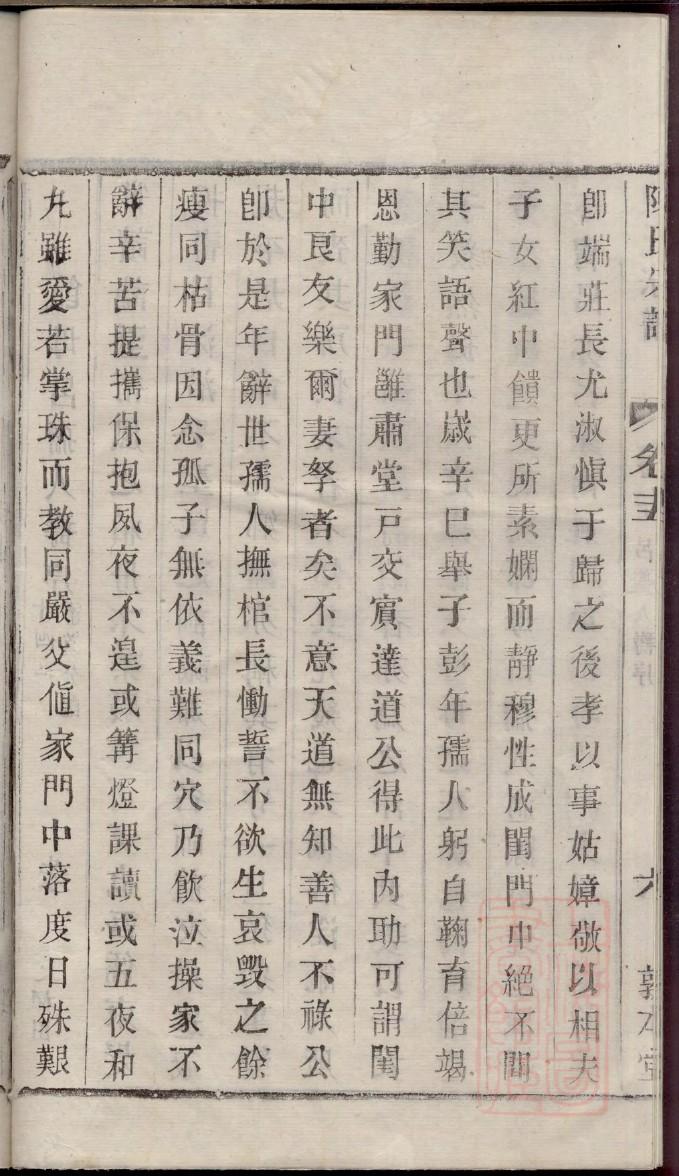 卽端莊長尤淑慎于歸之後孝以事姑嫜敬以相夫
子女紅中饋更所素嫻而靜穆性成閨門中絕不聞
其笑語聲也歲辛巳舉子彭年孺人躬自鞠育倍竭
恩勤家門雝肅堂戸交賓達道公得此內助可謂閨
中良友樂爾妻孥者矣不意天道無知善人不祿公
卽於是年辭世孺人撫棺長慟誓不欲生哀毀之餘
瘦同枯骨因念孤子無依義難同穴乃飲泣操家不
辭辛苦提攜保抱夙夜不遑或篝燈課讀或五夜和
丸雖愛若掌珠而教同嚴父値家門中落度日殊艱